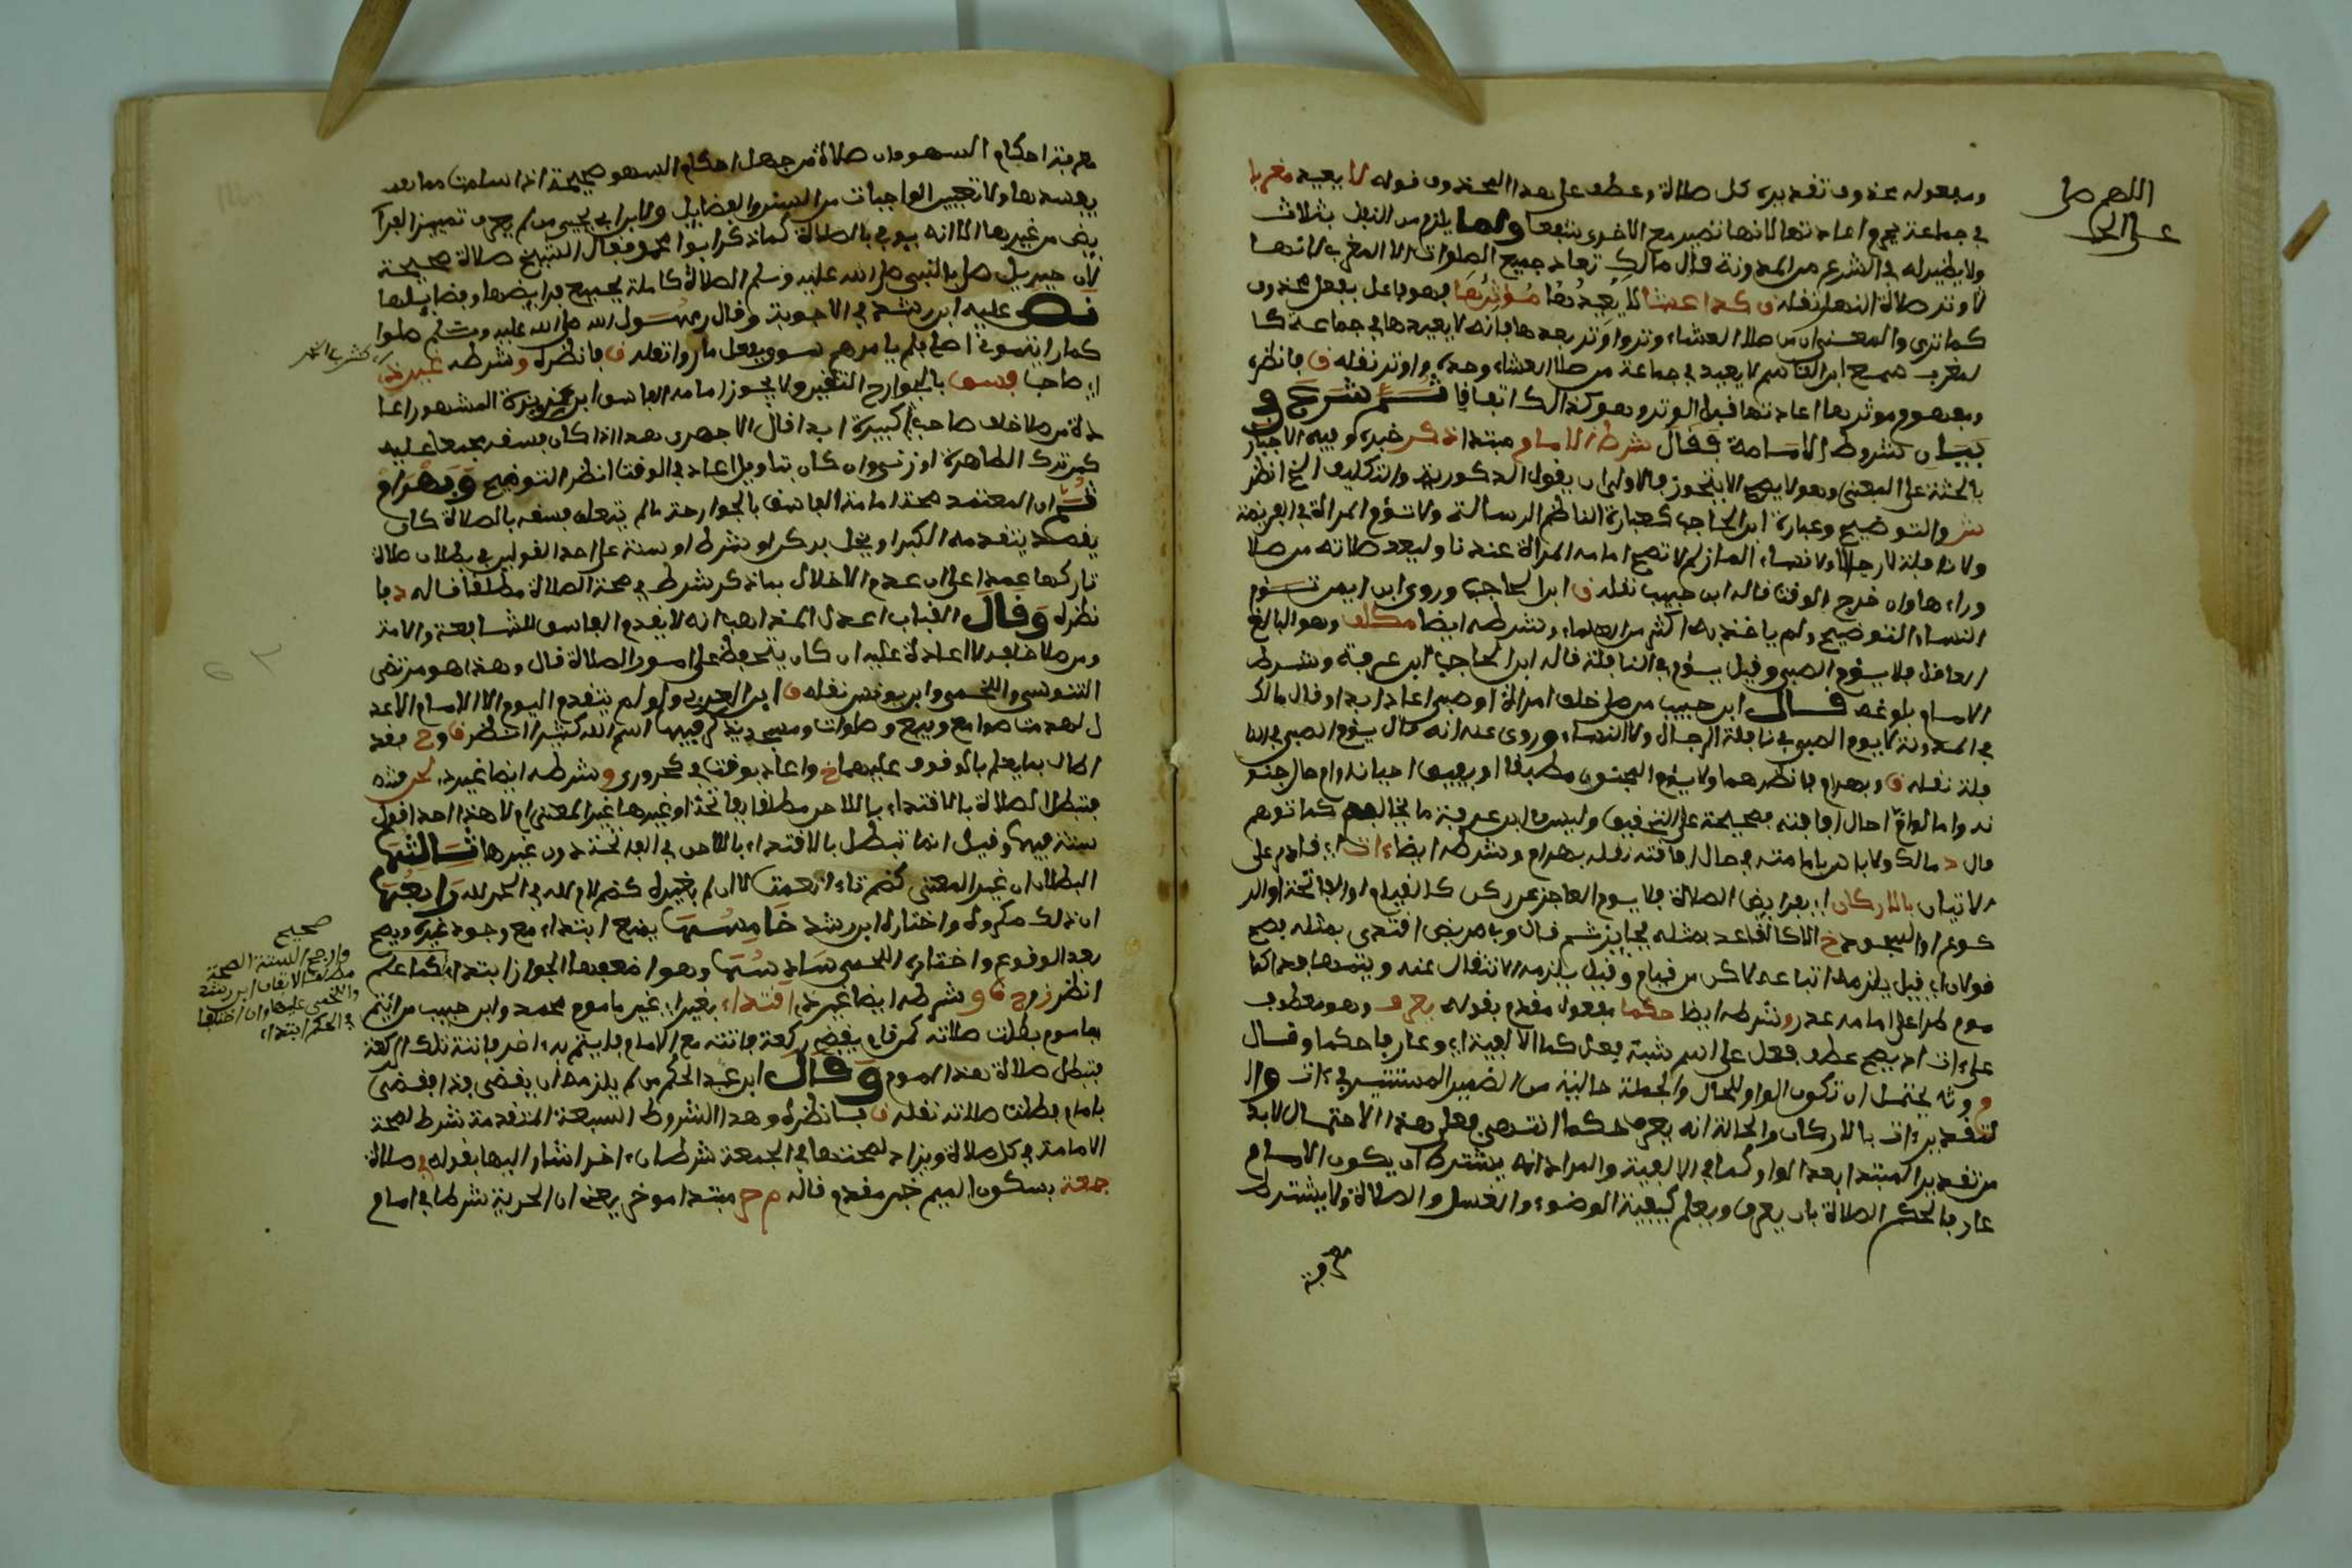 اللهم صل
على
ومفعوله محذوف تقديره كل صلاة وعطف على هذا المحذوف قوله لا يعيد مغربا
في جماعة يحرم اعادتها لانها تصير مع الاخرى شفعا ولما يلزم من النفل بثلاث
ولا نظير له في الشرع من المدونة قال مالك تعاد جميع الصلوات الا المغرب لانها
لا وتر صلاة النهار نقله ق كذا عشا لا يعيدها موترها فهو فاعل بفعل محذوف
كما ترى والمعنى ان من صلا العشاء وترا واوتر بعدها فانه لا يعيدها في جماعة كا
لمغرب سمع ابن القاسم لا يعيد في جماعة من صلا العشاء وحده واوتر نقله ق فانظره
ومفهوم موترها اعادتها قبل الوتر وهو كذالك اتفاقا ثم شرع في
بيان شروط الامامة فقال شرط الامام مبتدا ذكر خبره وفيه الاخبار
بالجثة على المعنى وهو لا يصح الا بتجوز فالاولى ان يقول الذكورية والتكليف الخ انظر
والتوضيح وعبارة ابن الحاجب كعبارة الناظم الرسالة ولا تؤم المراة في فريضة
ولا نافلة لا رجالا ولا نساء المازري لا تصح امامة المراة عندنا وليعد صلاته من صلا
وراءها وان خرج الوقت قاله ابن حبيب نقله ق ابن الحاجب وروى ابن ايمن تؤم
النساء التوضيح ولم ياخذ به اكثر من العلماء وشرطه ايضا مكلف وهو البالغ
العاقل فلا يؤم الصبي وقيل يؤم في النافلة قاله ابن الحاجب ابن عرفة وشرط
الامام بلوغه قال ابن حبيب من صلى خلف امراة او صبي اعاد ابدا وقال مالك
في المدونة لا يوم الصبي في نافلة الرجال ولا النساء وروى عنه انه قال يؤم الصبي في النا
فلة نقله ق وبهرام فانظرهما ولا يؤم المجنون مطبقا او يفيق احيانا وام حال جنو
نه واما لو ام حال افاقته فصحيحة على التحقيق وليس ابن عرفة ما يخالف كما توهم
قال د مالك ولا باس بامامته في حال افاقته نقله بهرام وشرطه ايضا ءات اي قادر على
الاتيان بالاركان اي بفرايض الصلاة فلا يؤم العاجز عن ركن كالقيام او الفاتحة او الر
كوع او السجود خ الا كالقاعد بمثله فجايز شم قال وفي مريض اقتدى بمثله فصح
قولان اي قيل يلزمه اتباعه لاكن من قيام وقيل يلزمه الانتقال عنه ويتمها فذا كما
موم طرا على امامه عذر وشرطه ايضا حكما مفعول مقدم بقوله يعرف وهو معطوف
على ءات اذ يصح عطف فعل على اسم شبه فعل كما الالفية اي وعارفا حكما وقال
م ووته يحتمل ان تكون الواو للحال والجملة حالية من الضمير المستتر في ءات وال
لتقدير ءات بالاركان والحالة انه يعرف حكما انتهى وعلى هذا الاحتمال لابد
من تقدير المبتدا بعد الواو كما في الالفية والمراد انه يشترط ان يكون الامام
عارفا بحكم الصلاة بان يعرف ويعلم كيفية الوضوء والغسل والصلاة ولا يشترط
معرفة
معرفة احكام السهو فان صلاة من جهل احكام السهو صحيحة اذا سلمت مما
يفسدها ولا تعيين الواجبات من السنن والفضايل ولابن ابي يحيى من لم يعرف تمييز الفرآ
يض من غيرها الا انه يوفي بالصلاة كما ذكر ابو محمد فقال الشيخ صلاة صحيحة
لان جبريل صلى بالنبي صلى الله عليه وسلم الصلاة كاملة بجميع فرايضها وفضايلها
نص عليه ابن رشد في الاجوبة وقال رسول الله صلى الله عليه وسلم صلوا
كما رايتموني اصلي فلم يامرهم سوى بفعل ما راو نقله ق فانظره وشرطه غير ذي
اي صاحب فسق بالجوارح ولا يجوز امامة الفاسق ابن بزيزة المشهور اعا
دة من صلا خلف صاحب كبيرة ابدا قال الابهري هذا اذا كان فسقه مجمعا عليه
كمن ترك الطاهرة او زنى وان كان بتاويل اعاد في الوقت انظر التوضيح وبهرام
ثم ان المعتمد صحة امامة الفاسق بالجوارح ما لم يتعلق فسقه بالصلاة كان
يقصد بتقدمه الكبر او يخل بركن او شرط او سنة على احد القولين في بطلان صلاة
تاركها عمدا على ان عدم الاخلال بما ذكر شرط في صحة الصلاة مطلقا قاله د فا
نظره وقال القباب اعدل المذاهب انه لا يقدم الفاسق للشفاعة والامامة
ومن صلا خلفه لا اعادة عليه ان كان يتحفظ على امور الصلاة قال وهذا هو مرتضى
التونسي واللخمي وابن يونس نقله ق ابن العربي ولو لم يتقدم اليوم الا الامام الاعد
ل لهدمت صوامع وبيع وصلوات ومسجد يذكر فيها اسم الله كثيرا انظر ق وح فقد
اطال بما يعلم بالوقوف عليهما خ واعاد بوقت في كحروري وشرطه ايضا غير لحن منه
فتبطل الصلاة بالاقتداء باللاحن مطلقا بفاتحة او غيرها غير المعنى ام لا هذا احد اقول
ستة فيها وقيل انما تبطل بالاقتداء باللاحن في الفاتحة دون غيرها ثالثها
البطلان ان غير المعنى كضم تاء انعمت لا ان لم يغيره كضم لام لله في الحمد لله رابعها
ان ذلك مكروه واختاره ابن رشد خامسها يمنع ابتداء مع وجود غيره ويصح
بعد الوقوع واختاره اللخمي سادسها وهو اضعفها الجواز ابتداء كما علم
انظر ز وح ق وشرطه ايضا غير ذي اقتداء بغير اي غير ماموم محمد وابن حبيب من ائتم
بماموم بطلت صلاته كمن قام يقضي ركعة فاتته مع الامام فليتم به اخر فاتته تلك الركعة
فتبطل صلاة هذا الموم وقال ابن عبد الحكم من لم يلزمه ان يقضي فذا فقضى
بامام بطلت صلاته نقله ق فانظره وهذا الشروط السبعة المتقدمة شرط لصحة
الامامة في كل صلاة ويزاد لصحتها في الجمعة شرطان ءاخر اشار اليها بقوله في صلاة
جمعة بسكون الميم خبر مقدم قاله م ح مبتدا موخر يعني ان الحرية شرط في امام
صحيح
وارجح الستة الصحة
مطلقا لاتفاق ابن رشد
واللخمي عليها وان اختلفا
في الحكم ابتداء